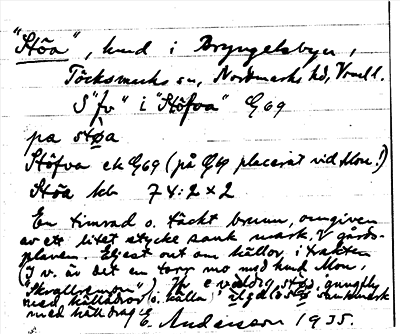 "Stöa", hmd i Bryngelsbyn,
Töcksmarks sn, Nordmarks hd, Vrml l.
S "fv" i "Stöfva" G69
pa støa
Stöfva ek G69 (på G69 placerat vid Mon.?)
Stöa kb 7 X:2 X 2
En timrad o. täckt brunn, omgiven
av ett litet stycke sank mark, å gårds-
planen. Eljest ont om källor i trakten
(I v. är det en torr mo med hmd Mon,
med källådror (o. källa)
med källdrag
E. Andersson 1935.